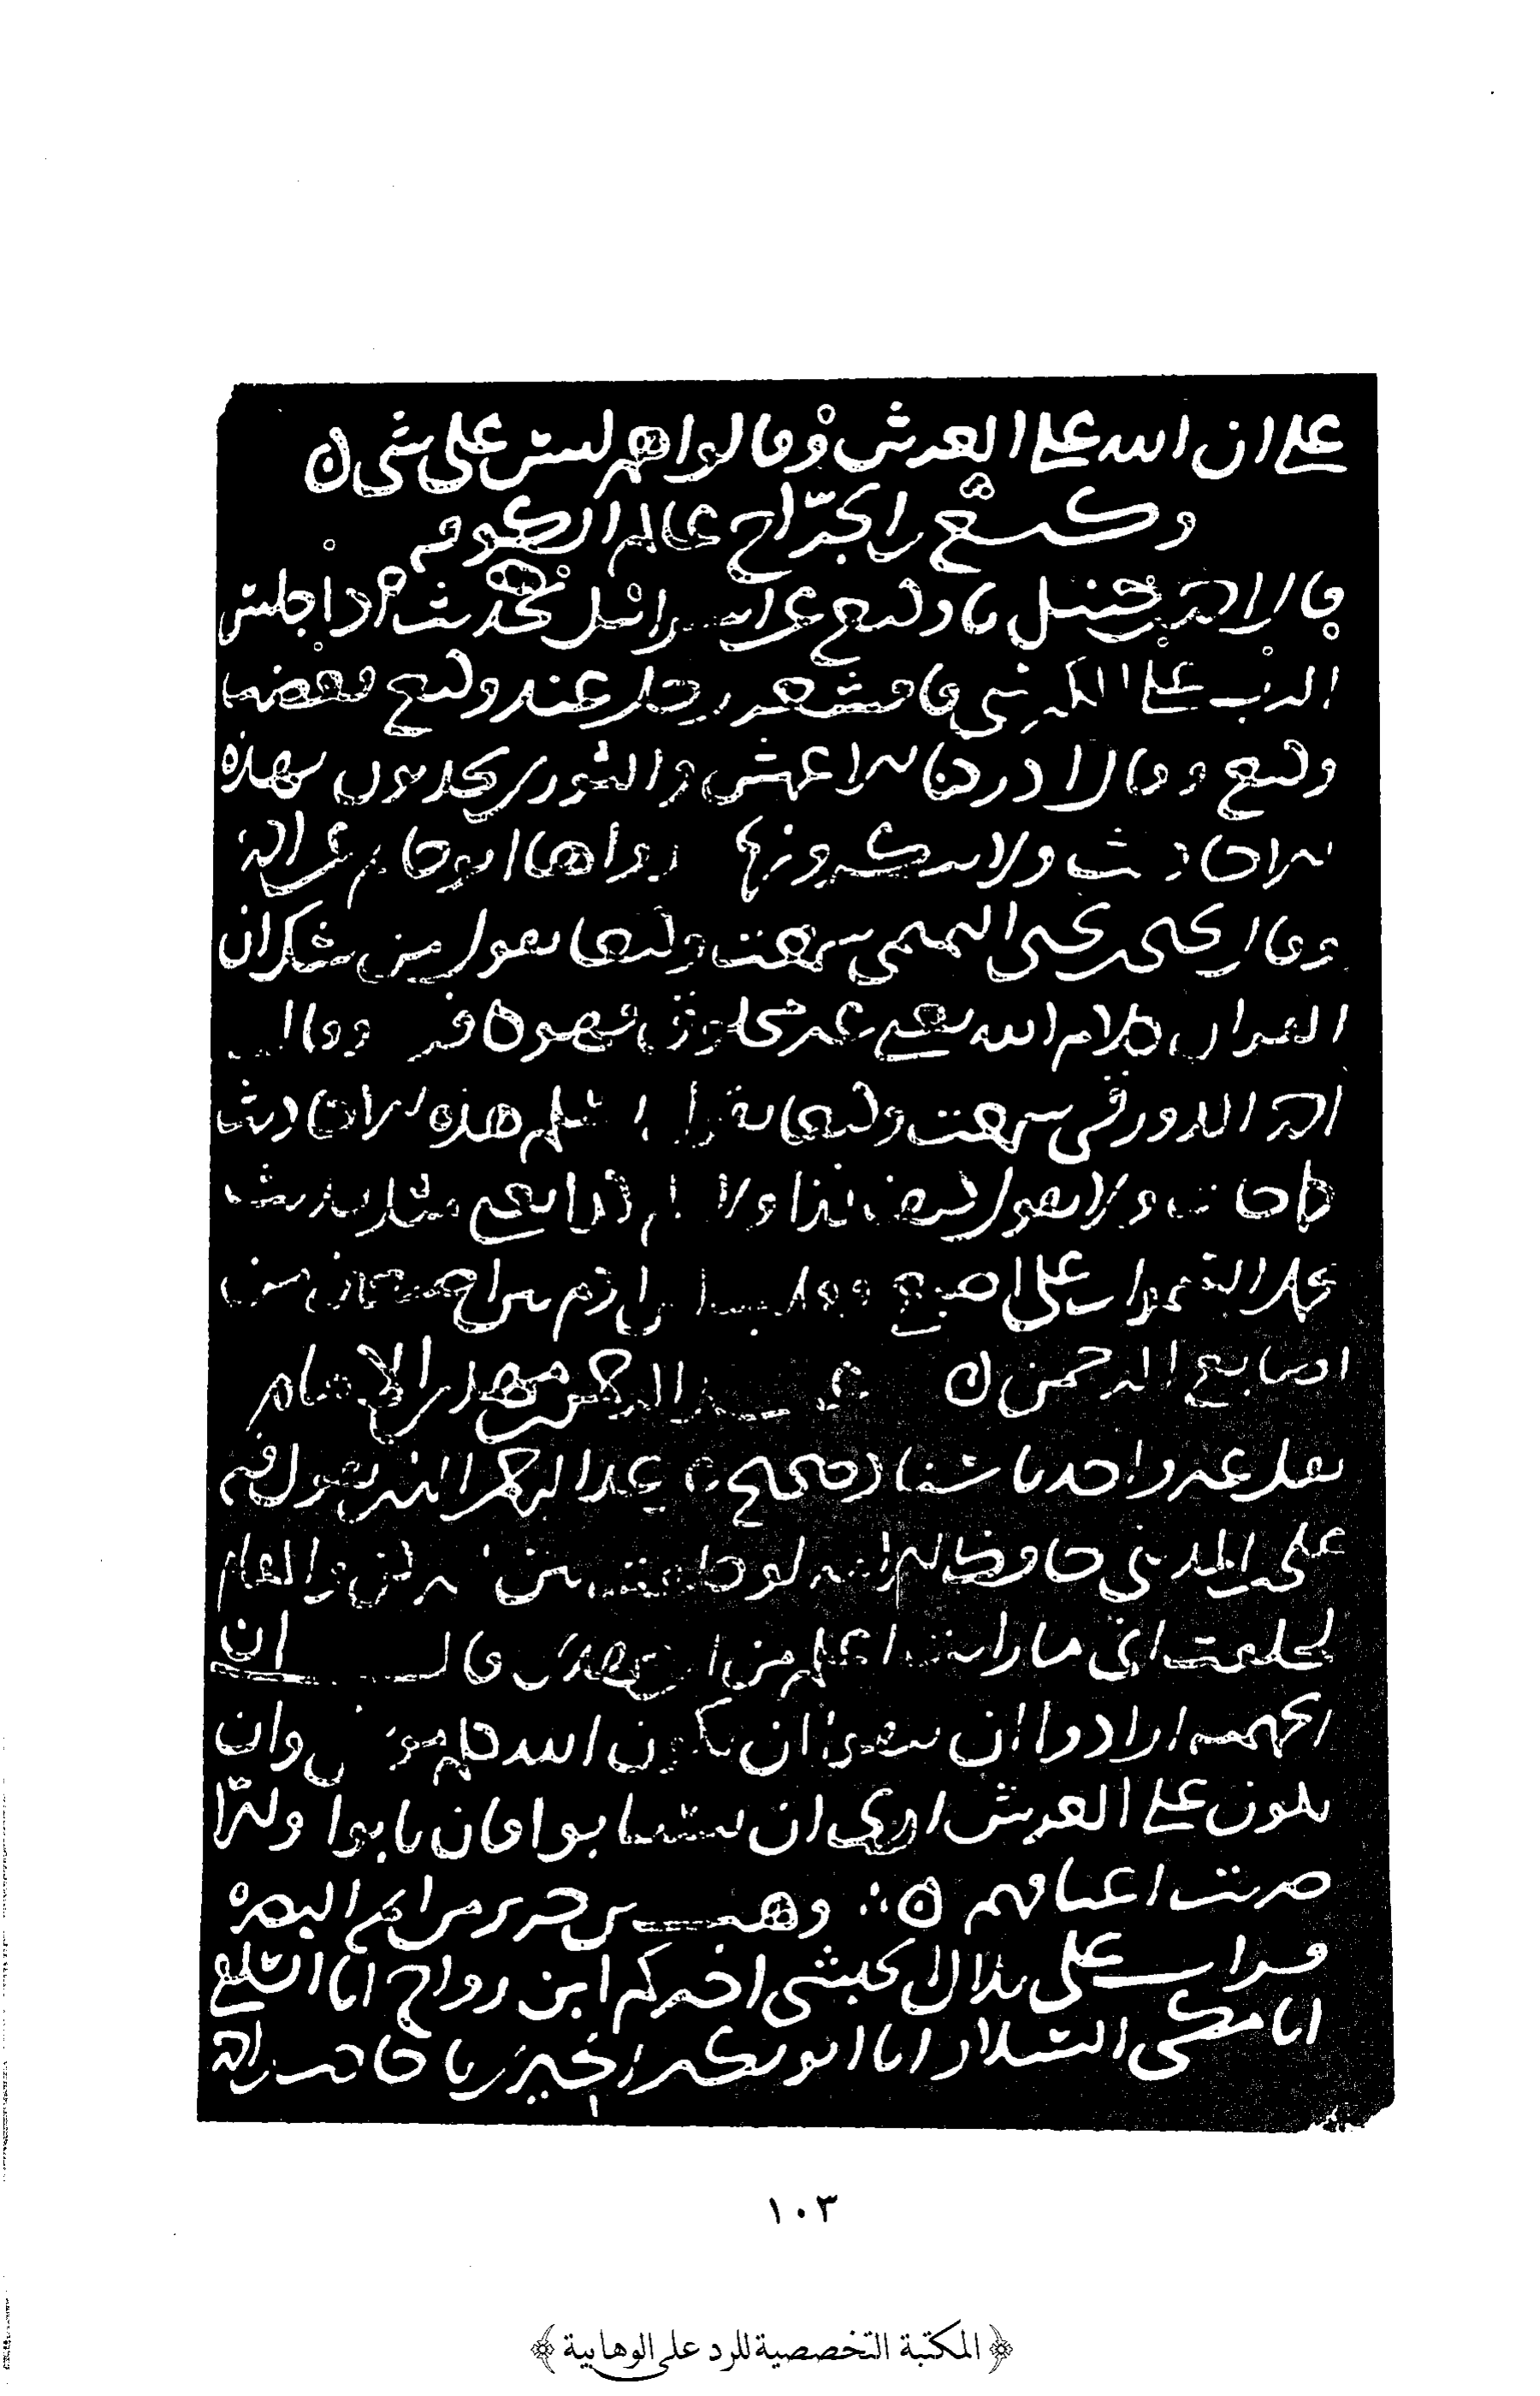 على ان الله على العرش وقالوا هم ليس على شي
وكيع بن الجراح عالم الكوفه
قال احمد بن حنبل نا وكيع عن اسرائيل بحديث اذا جلس
الرب على الكرسي فاقشعر رجل عند وكيع فغضب
وكيع وقال ادركنا الاعمش والثوري يحدثون بهذه
الاحاديث ولا ينكرونها رواها ابو حاتم عن احمد
وقال يحيى بن يحيى التميمي سمعت وكيعا يقول من شك ان
القران كلام الله يعني غير مخلوق فهو كافر وقال
احمد الدورقي سمعت وكيعا يقول نسلم هذه الاحاديث
كما جات ولا نقول كيف كذا ولا لم كذا يعني مثل حديث
يحمل السموات على اصبع وقلب ابن ادم بين اصبعين من
اصابع الرحمن عبد الرحمن بن مهدي الامام
نقل غير واحد باسناد صحيح عن عبد الرحمن الذي يقول فيه
علي بن المديني حافظ الامه لو حلفت بين الركن والمقام
لحلفت اني ما رايت اعلم من ابن مهدي قال ان
الجهميه ارادوا ان ينفوا ان يكون الله كلم موسى وان
يكون على العرش ارى ان يستتابوا فان تابوا والا
ضربت اعناقهم وهب بن جرير من ايمه البصره
قرات على بلال الحبشي اخبركم ابن رواج انا السلفي
انا مكي السلار انا ابو بكر الحيري نا حاجب بن احمد
١٠٣
المكتبة التخصصية للرد على الوهابية